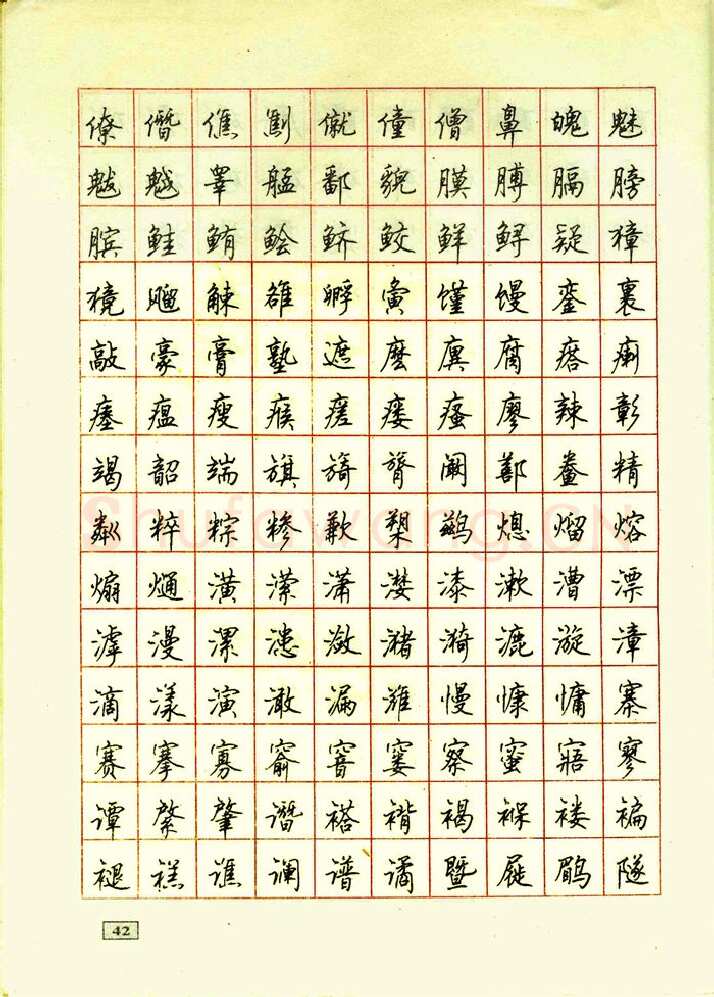 僚僭僬劁僦僮僧鼻魄魅
魃魆睾艋鄱貌膜膊膈膀
膑鲑鲔鲙鲚鲛鲜鲟疑獐
獍飗觫雒孵夤馑馒銮裹
敲豪膏塾遮麽廙腐瘩瘌
瘗瘟瘦瘊瘥瘘瘙廖辣彰
竭韶端旗旖膂阚鄯鲞精
粼粹粽糁歉槊鹚熄熘熔
Shufawang.CN
煽熥潢潆潇漤漆漱漕漂
滹漫漯漶潋潴漪漉漩漳
滴漾演澉漏潍慢慷慵寨
赛搴寡窬窨窭察蜜寤寥
谭綮肇谮褡褙褐褓褛褊
褪禚谯谰谱谲暨屣鹛隧
42